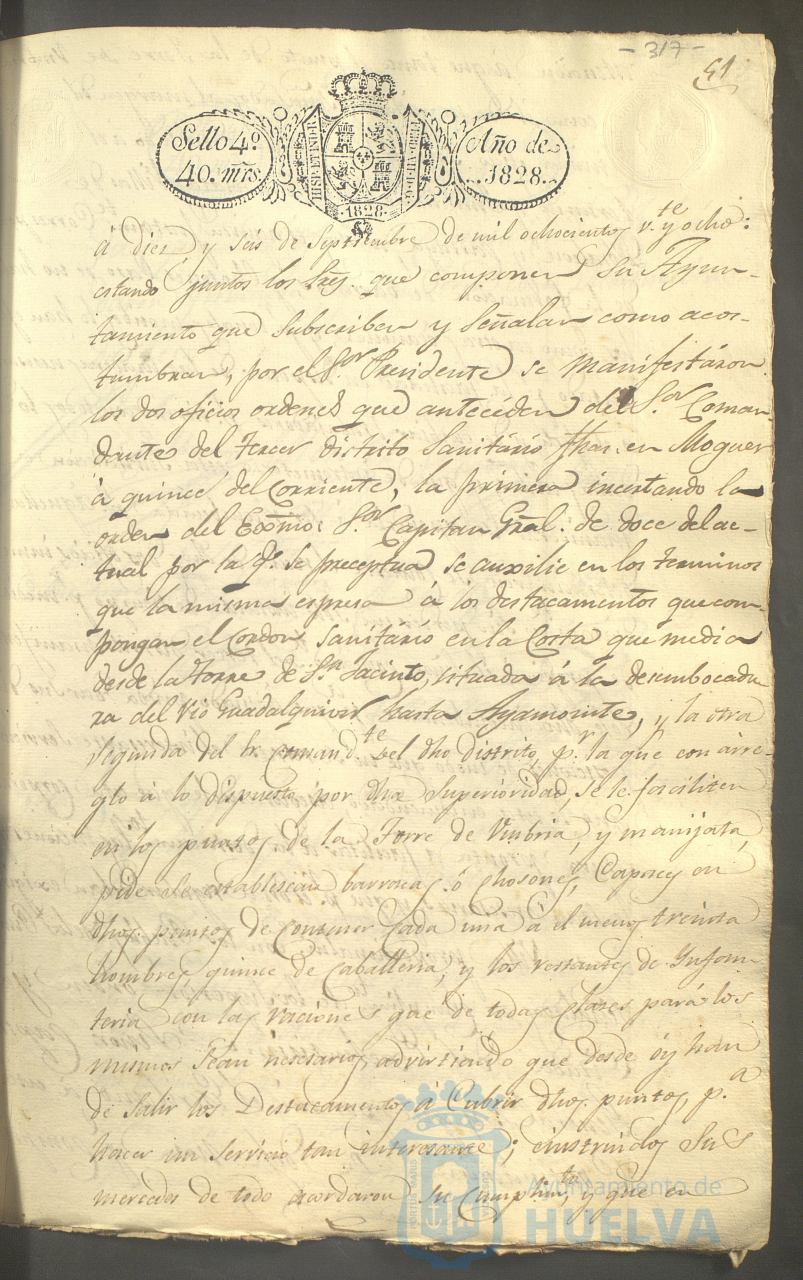 - 317 -
51
Sello 4º
40. mrs.
HISP. ET IND. R.
1828
Año de
1828.
á diez y seis de Septiembre de mil ochocientos v.te y ocho:
estando juntos los Sres. que componen su Ayun-
tamiento que subscriben y señalan como acos-
tumbran, por el S.or Presidente se manifestáron
los dos oficios ordenes que antecéden del S.or Coman-
dante del tercer distrito Sanitário fhas. en Moguer
á quince del Corriente, la primera incertando la
orden del Exmo. S.or Capitan Gral. de doce del ac-
tual por la q.e se preceptua se auxilie en los terminos
que la misma espresa á los destacamentos que com-
pongan el Cordon Sanitário en la Costa que media
desde la Torre de S.n Jacinto, situada á la desembocadu-
ra del rio Guadalquivir hasta Ayamonte, y la otra
segunda del Sr. Comand.te del dho distrito, p.r la que con arre-
glo á lo dispuesto por dha Superioridad, se le faciliten
en los puntos de la Torre de Umbria, y manijata,
pide se establescan barracas ó Chosones, Capaces en
dhos. puntos de Contener Cada una á el menos treinta
hombres quince de Caballeria, y los restantes de Infan-
teria con las raciones que de todas Clases pará los
mismos sean nesesarios advirtiendo que desde óy han
de salir los Destacamentos á Cubrir dhos. puntos, p.a
hacer un servicio tan interesante; einstruidos Sus
mercedes de todo acordaron su Cumplim.to y que en
Ayuntamiento de
HUELVA